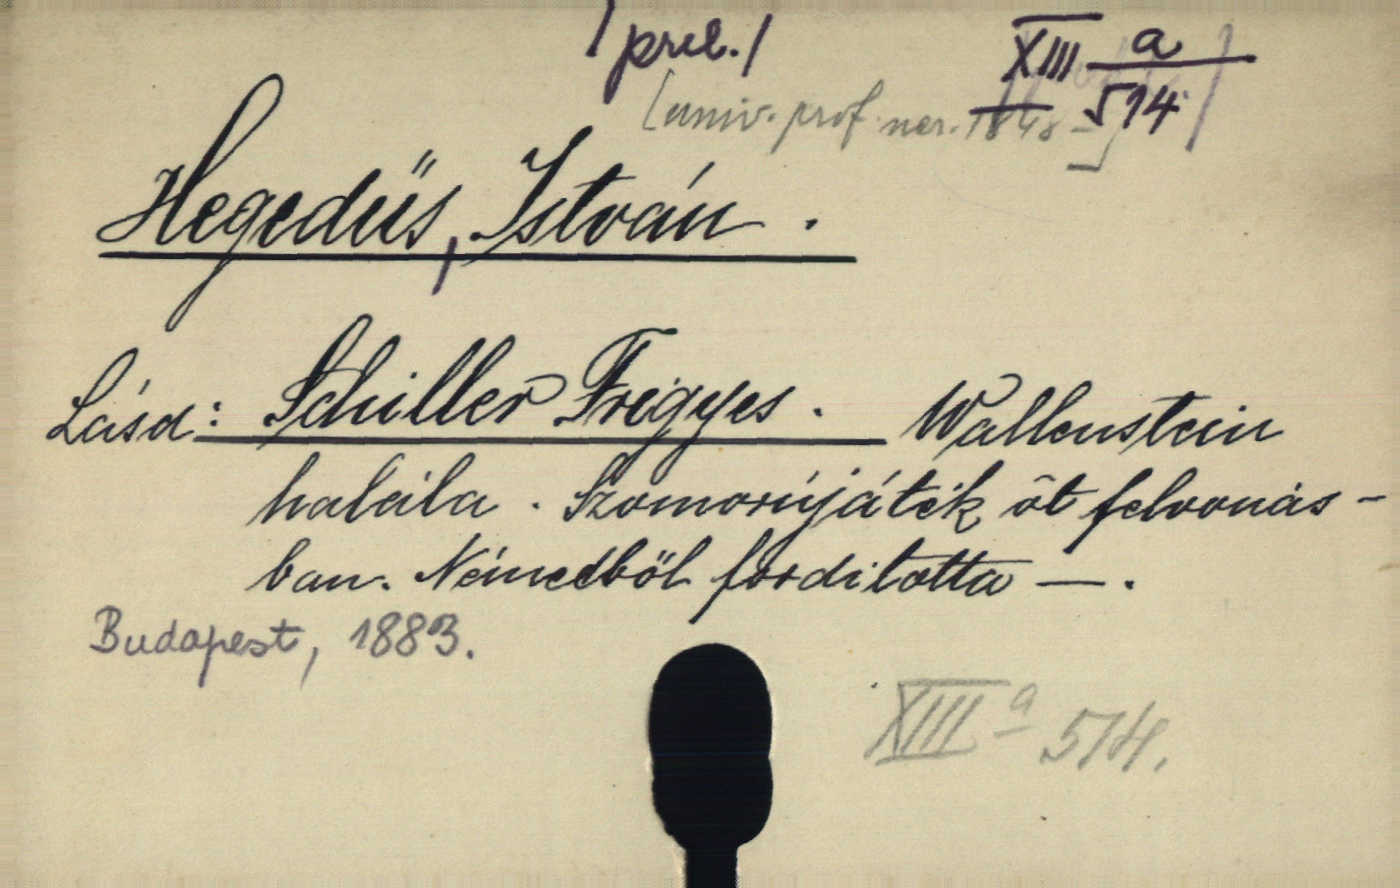 /prel./ XIII a/514
[univ. prof. nar. 1848-]
Hegedüs, István.
Lásd: Schiller Frigyes. Wallenstein
halála. Szomorújáték öt felvonás-
ban. Németből fordította —.
Budapest, 1883.
XIII a 514.